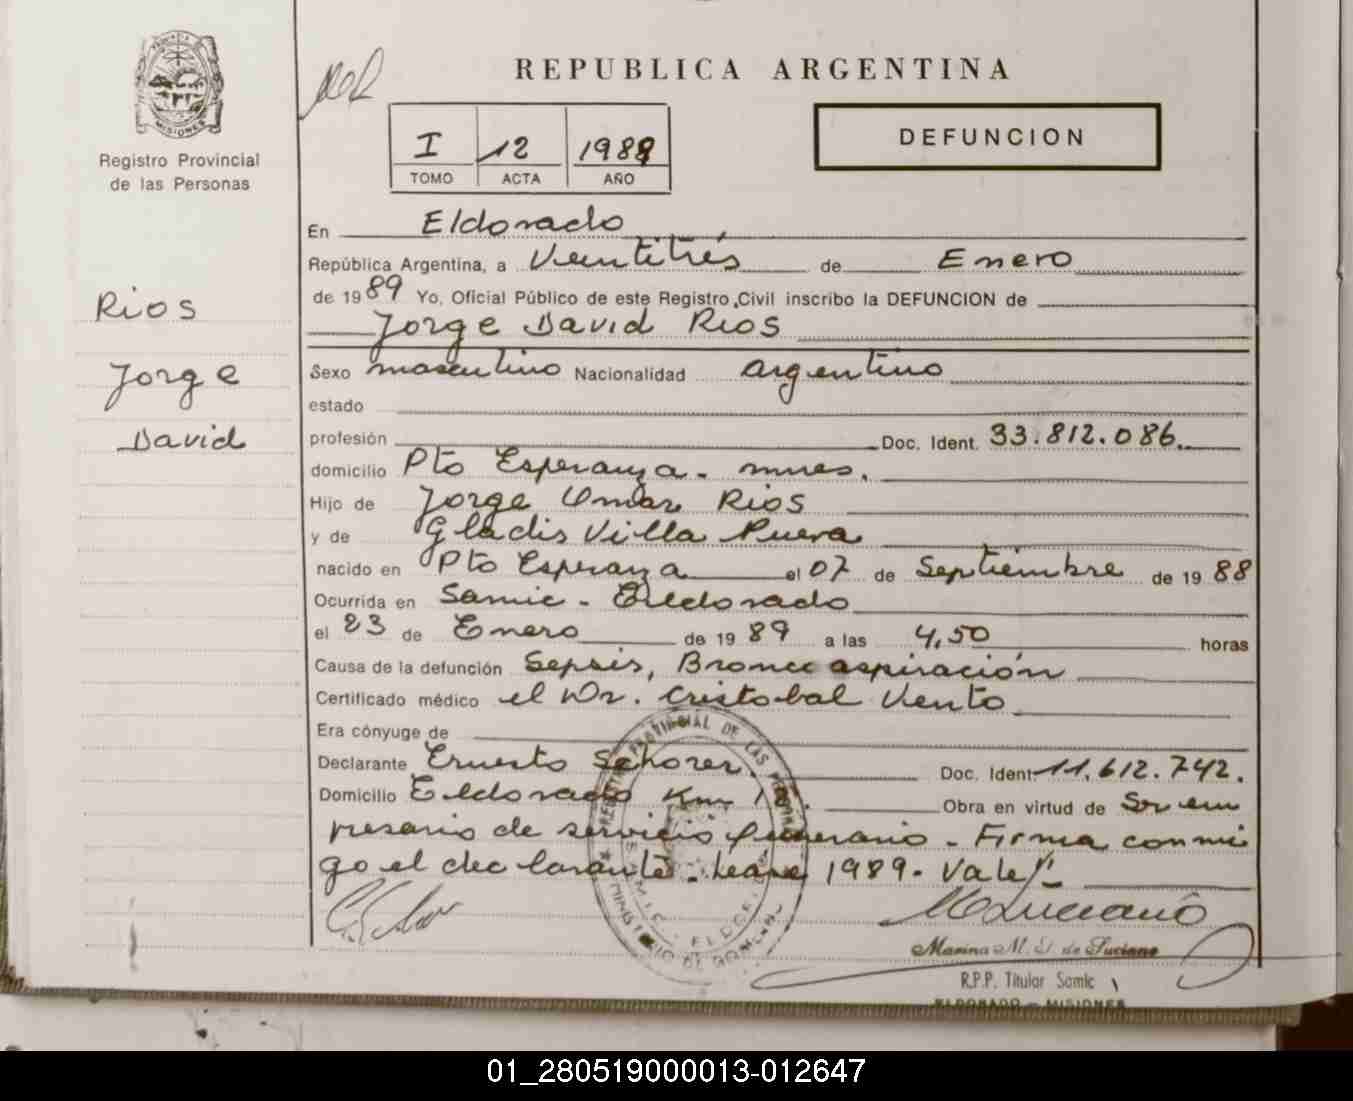 REPUBLICA ARGENTINA
PROVINCIA DE MISIONES
Registro Provincial
de las Personas
I 12 1989
TOMO ACTA AÑO
DEFUNCION
En Eldorado
República Argentina, a Veintitrés de Enero
de 1989 Yo, Oficial Público de este Registro Civil inscribo la DEFUNCION de
Jorge David Rios
Rios
Jorge
David
Sexo masculino Nacionalidad argentino
estado
profesión Doc. Ident. 33.812.086.
domicilio Pto Esperanza - mnes.
Hijo de Jorge Omar Rios
y de Gladis Villa Nueva
nacido en Pto Esperanza el 07 de Septiembre de 1988
Ocurrida en Samic - Eldorado
el 23 de Enero de 1989 a las 4,50 horas
Causa de la defunción Sepsis, Bronco aspiración
Certificado médico el Dr. Cristobal Vento
Era cónyuge de
Declarante Ernesto Schorer. Doc. Ident 11.612.742.
Domicilio Eldorado Km Obra en virtud de Ser em
presario de servicio funerario - Firma conmi
go el declarante - Léase 1989. Vale/-
MLuciano
Marina M. E. de Luciano
R.P.P. Titular Samic
ELDORADO - MISIONES
REGISTRO PROVINCIAL DE LAS PERSONAS
SAMIC - ELDORADO
MINISTERIO DE GOBIERNO
01_280519000013-012647